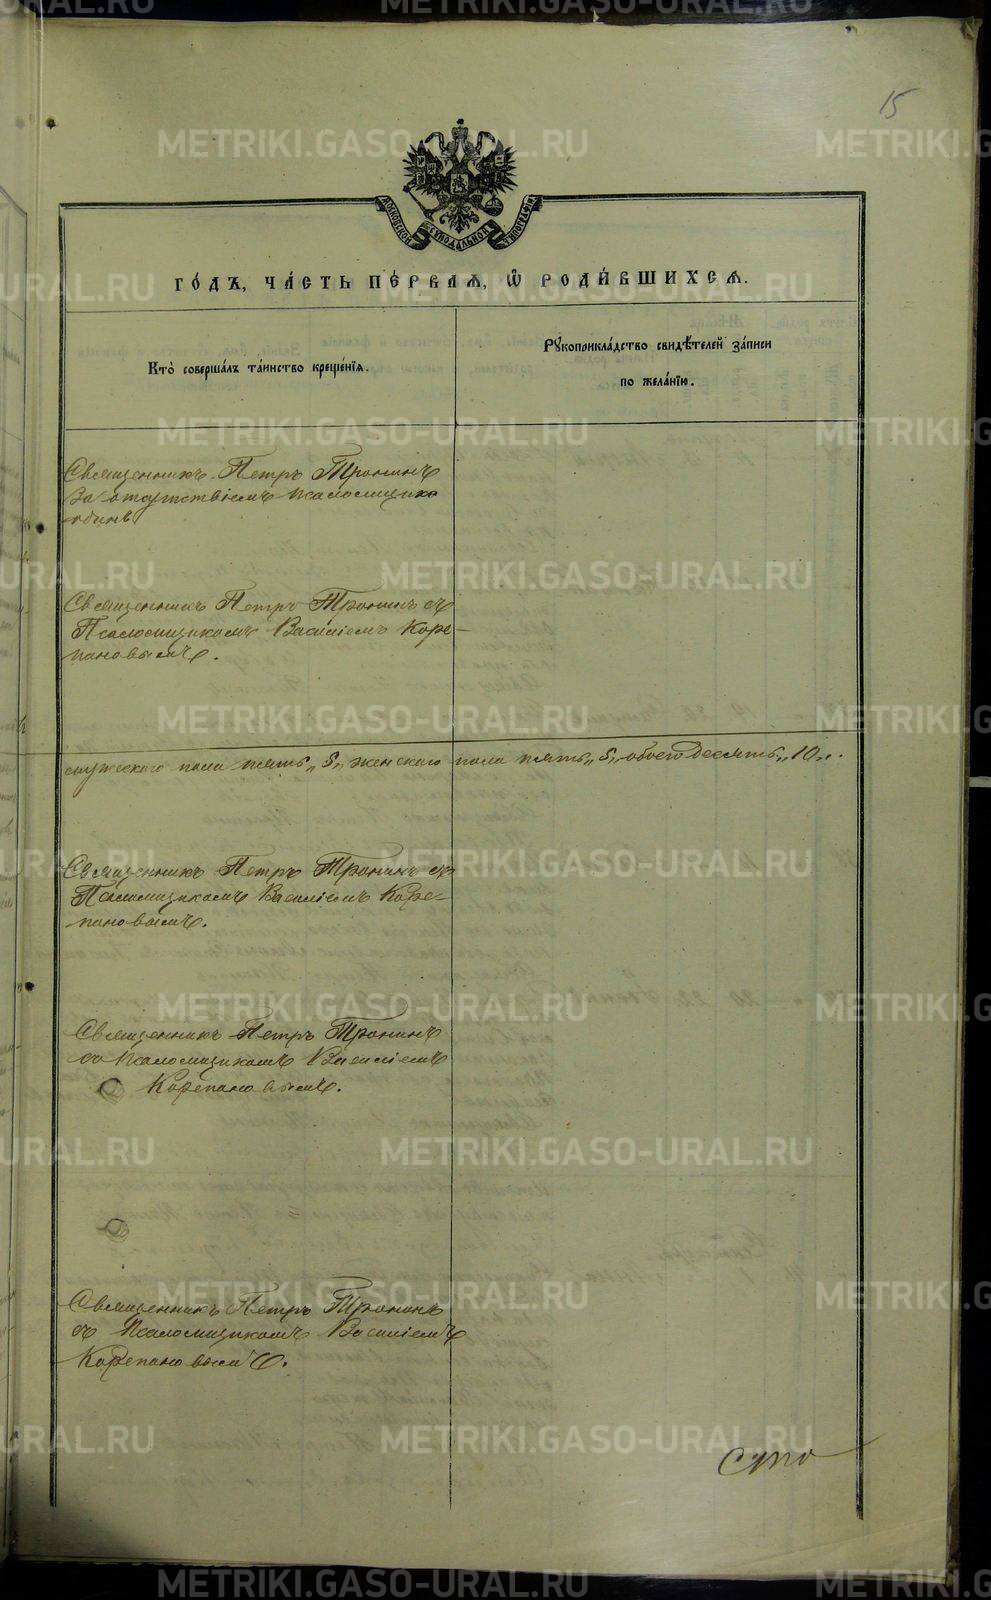 15
МОСКОВСКОЙ СѴНОДАЛЬНОЙ ТИПОГРАФІИ
ГО́ДЪ, ЧА́СТЬ ПЕ́РВАЯ, Ѡ҆ РОДИ́ВШИХСЯ.
Кто̀ соверша́лъ та́инство креще́нїя.
Рꙋкоприкла́дство свидѣ́телей за́писи
по жела́нїю.
Священникъ Петръ Тронинъ
За отсутствіемъ псаломщика
одинъ
Священникъ Петръ Тронинъ съ
Псаломщикомъ Василіемъ Коре-
пановымъ.
мужескаго пола пять „5„ женскаго пола пять „5„ обоего десять „10„.
Священникъ Петръ Тронинъ съ
Псаломщикомъ Василіемъ Коре-
пановымъ.
Священникъ Петръ Тронинъ
съ псаломщикомъ Василіемъ
Корепановымъ.
Священникъ Петръ Тронинъ
съ Псаломщикомъ Василіемъ
Корепановымъ.
METRIKI.GASO-URAL.RU